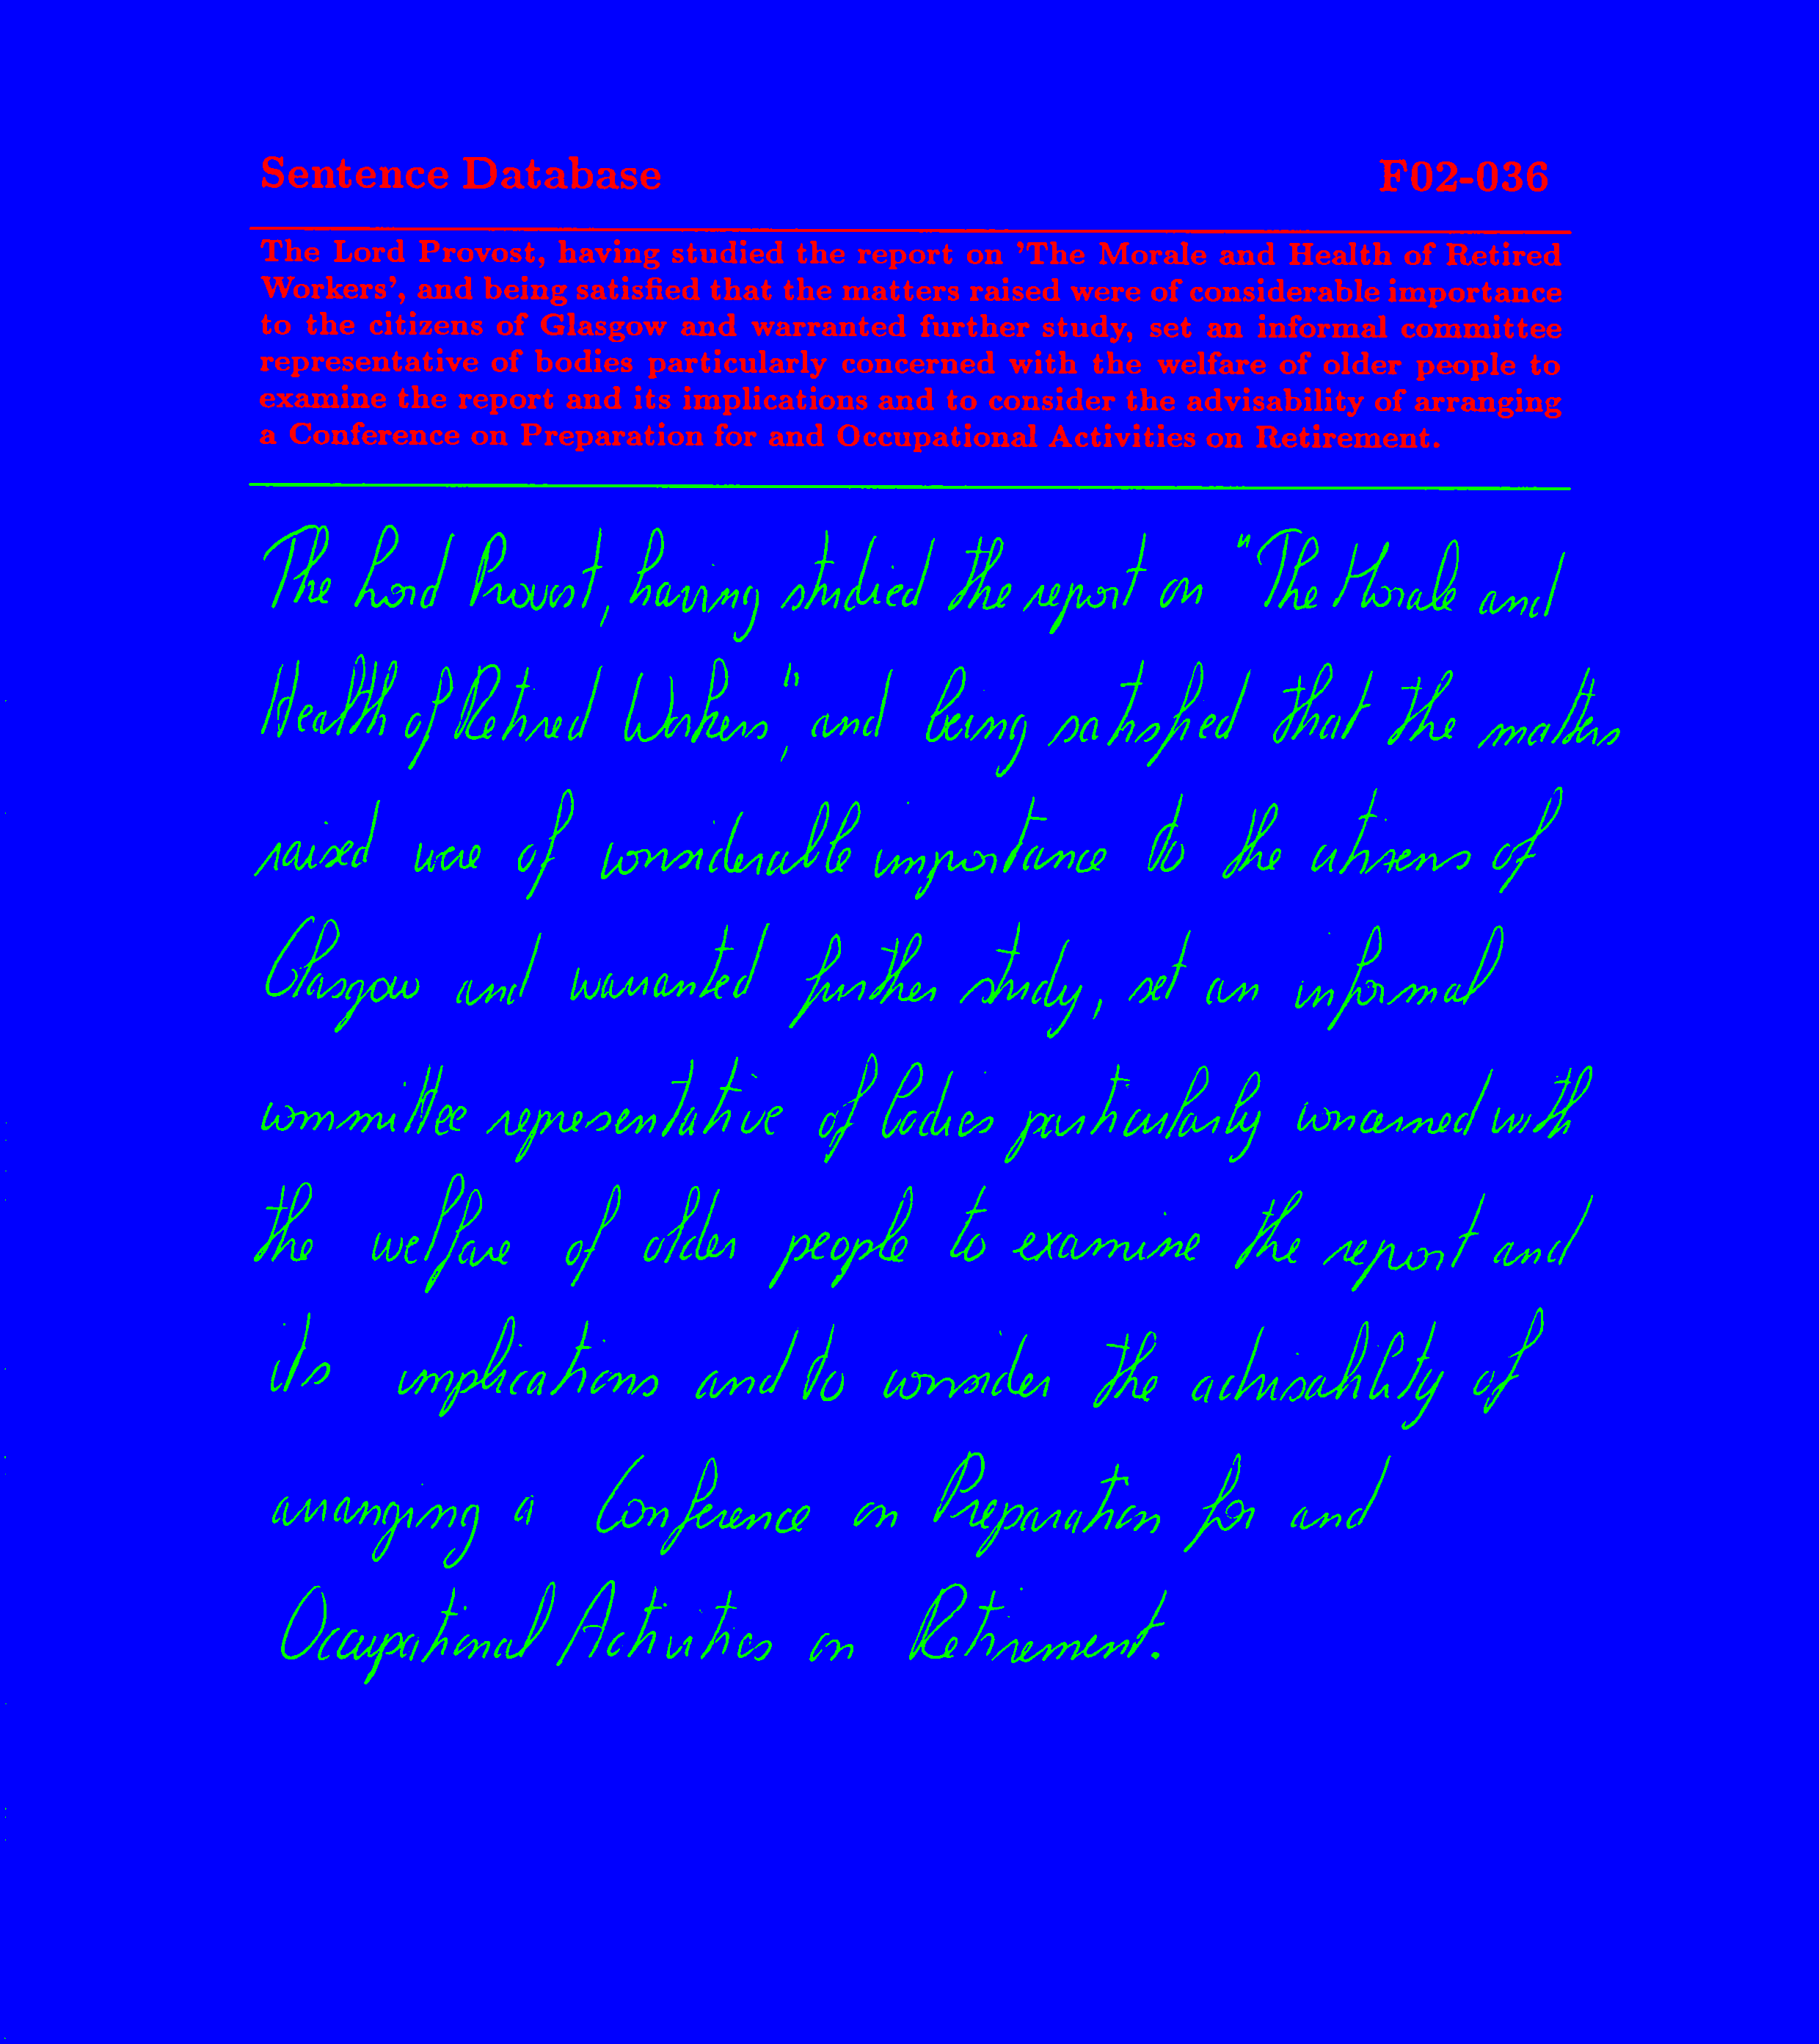 Sentence Database F02-036
The Lord Provost, having studied the report on 'The Morale and Health of Retired
Workers', and being satisfied that the matters raised were of considerable importance
to the citizens of Glasgow and warranted further study, set an informal committee
representative of bodies particularly concerned with the welfare of older people to
examine the report and its implications and to consider the advisability of arranging
a Conference on Preparation for and Occupational Activities on Retirement.
The Lord Provost, having studied the report on "The Morale and
Health of Retired Workers", and being satisfied that the matters
raised were of considerable importance to the citizens of
Glasgow and warranted further study, set an informal
committee representative of bodies particularly concerned with
the welfare of older people to examine the report and
its implications and to consider the advisability of
arranging a Conference on Preparation for and
Occupational Activities on Retirement.